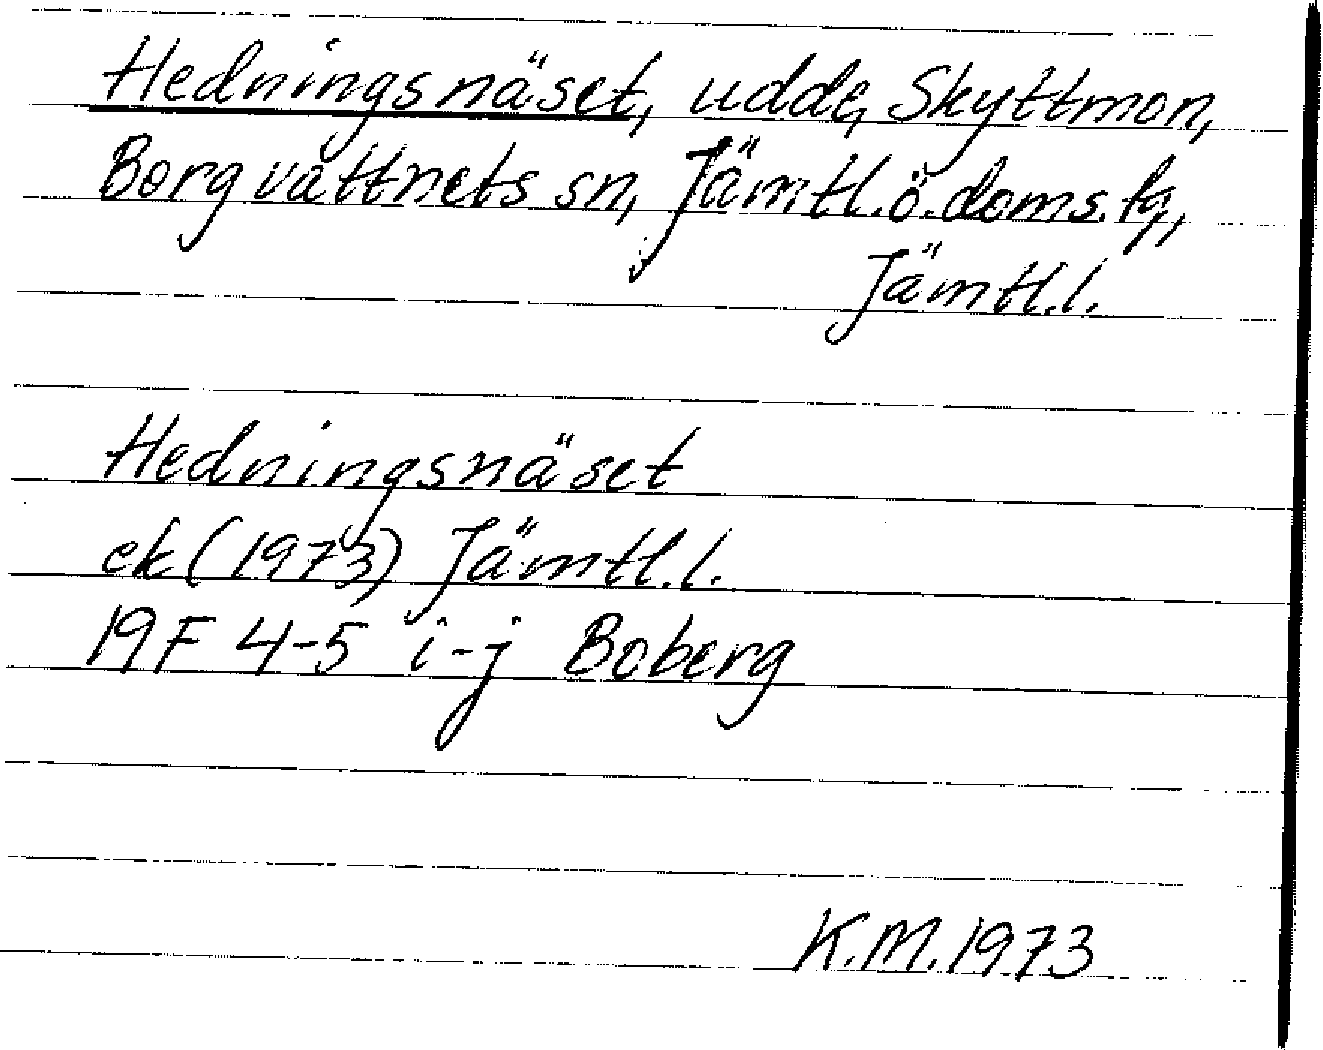 Hedningsnäset, udde, Skyttmon,
Borgvattnets sn, Jämtl.ö.doms.fg,
Jämtl.l.
Hedningsnäset
ek (1973) Jämtl.l.
19F 4-5 i-j Boberg
K.M.1973